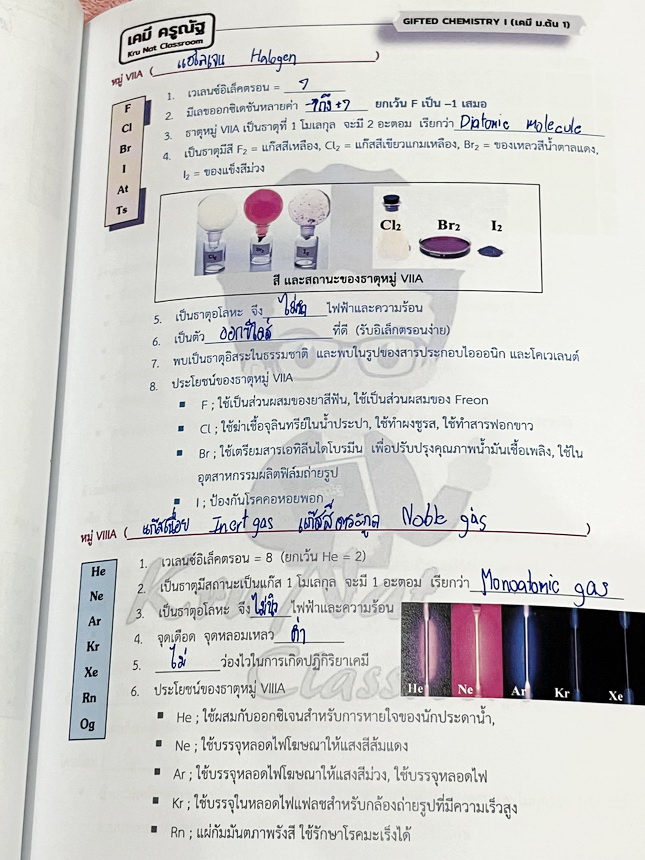 เคมี ครูณัฐ
Kru Nat Classroom
GIFTED CHEMISTRY I (เคมี ม.ต้น 1)
หมู่ VIIA ( แฮโลเจน Halogen )
F
Cl
Br
I
At
Ts
1. เวเลนซ์อิเล็คตรอน = 7
2. มีเลขออกซิเดชันหลายค่า -1 ถึง +7 ยกเว้น F เป็น –1 เสมอ
3. ธาตุหมู่ VIIA เป็นธาตุที่ 1 โมเลกุล จะมี 2 อะตอม เรียกว่า Diatomic molecule
4. เป็นธาตุมีสี F₂ = แก๊สสีเหลือง, Cl₂ = แก๊สสีเขียวแกมเหลือง, Br₂ = ของเหลวสีน้ำตาลแดง,
I₂ = ของแข็งสีม่วง
Cl₂ Br₂ I₂
สี และสถานะของธาตุหมู่ VIIA
5. เป็นธาตุอโลหะ จึง ไม่นำ ไฟฟ้าและความร้อน
6. เป็นตัว ออกซิไดส์ ที่ดี (รับอิเล็กตรอนง่าย)
7. พบเป็นธาตุอิสระในธรรมชาติ และพบในรูปของสารประกอบไอออนิก และโคเวเลนต์
8. ประโยชน์ของธาตุหมู่ VIIA
▪ F ; ใช้เป็นส่วนผสมของยาสีฟัน, ใช้เป็นส่วนผสมของ Freon
▪ Cl ; ใช้ฆ่าเชื้อจุลินทรีย์ในน้ำประปา, ใช้ทำผงชูรส, ใช้ทำสารฟอกขาว
▪ Br ; ใช้เตรียมสารเอทิลีนไดโบรมีน เพื่อปรับปรุงคุณภาพน้ำมันเชื้อเพลิง, ใช้ใน
อุตสาหกรรมผลิตฟิล์มถ่ายรูป
▪ I ; ป้องกันโรคคอหอยพอก
หมู่ VIIIA ( แก๊สเฉื่อย Inert gas แก๊สมีตระกูล Noble gas )
He
Ne
Ar
Kr
Xe
Rn
Og
1. เวเลนซ์อิเล็คตรอน = 8 (ยกเว้น He = 2)
2. เป็นธาตุมีสถานะเป็นแก๊ส 1 โมเลกุล จะมี 1 อะตอม เรียกว่า Monoatomic gas
3. เป็นธาตุอโลหะ จึง ไม่นำ ไฟฟ้าและความร้อน
4. จุดเดือด จุดหลอมเหลว ต่ำ
5. ไม่ ว่องไวในการเกิดปฏิกิริยาเคมี
He Ne Ar Kr Xe
6. ประโยชน์ของธาตุหมู่ VIIIA
▪ He ; ใช้ผสมกับออกซิเจนสำหรับการหายใจของนักประดาน้ำ,
▪ Ne ; ใช้บรรจุหลอดไฟโฆษณาให้แสงสีส้มแดง
▪ Ar ; ใช้บรรจุหลอดไฟโฆษณาให้แสงสีม่วง, ใช้บรรจุหลอดไฟ
▪ Kr ; ใช้บรรจุในหลอดไฟแฟลซสำหรับกล้องถ่ายรูปที่มีความเร็วสูง
▪ Rn ; แผ่กัมมันตภาพรังสี ใช้รักษาโรคมะเร็งได้